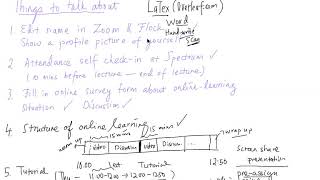 Things to talk about LaTex (Overleaf)
Word
Handwrite
Scan
1. Edit name in Zoom & Flock
Show a profile picture of yourself
2. Attendance self check-in at Spectrum ✓
(10 mins before lecture — end of lecture)
3. Fill in online survey form about online-learning
Situation ✓ Discussion ✓
4. Structure of online learning
15 mins 15 mins
warm up Intro Discussion Intro Discussion wrap up
10:00 Lect Tutorial 12:50
Screen share
presentation
5. Tutorial (Thu - 11:00-12:00 → 12:00-12:50)
pre-assign